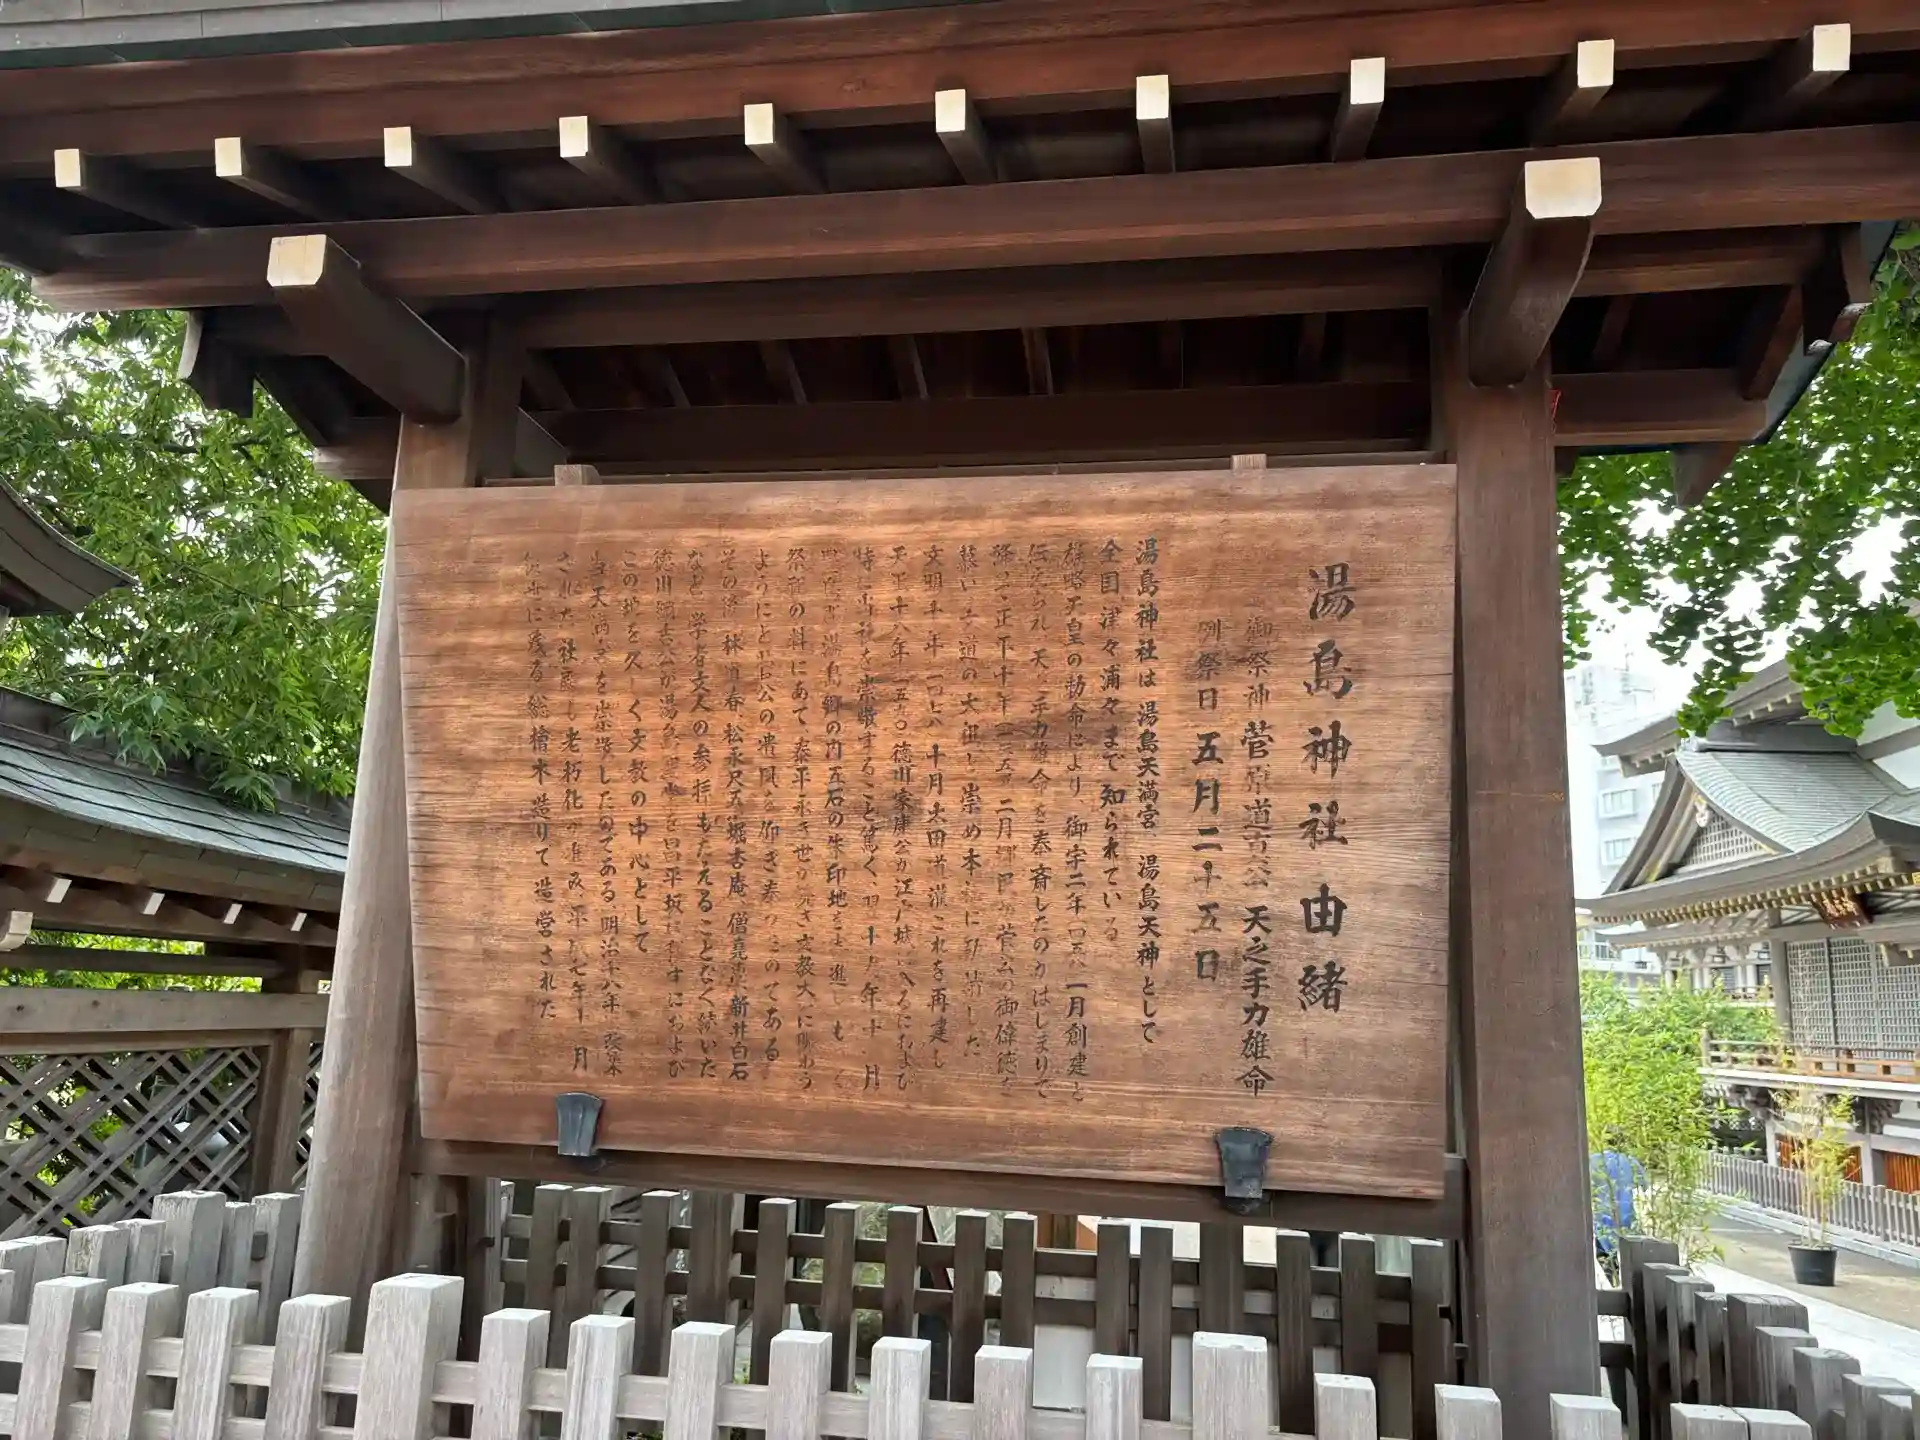 湯島神社由緒
御祭神 菅原道真公 天之手力雄命
例祭日 五月二十五日
湯島神社は 湯島天満宮 湯島天神として
全国津々浦々まで知られている
雄略天皇の勅命により、御宇二年 一月創建と
伝えられ、天之手力雄命を奉斎したのがはじまりで
降って正平十年 二月郷民が菅公の御偉徳を
慕い 文道の大祖と崇め本社に勧請した
文明十年 十月太田道灌これを再建し
天正十八年 徳川家康公が江戸城に入るにおよび
特に当社を崇敬すること篤く、翌十九年十一月
湯島郷の内五石の朱印地を
祭祀の料にあて、泰平永き世が続き文教大いに賑わう
ようにと菅公の遺風を仰ぎ奉ったのである
その後 林道春 松永尺五 堀杏庵、僧堯恵 新井白石
など 学者文人の参拝もたえることなく続いた
徳川綱吉公が湯島聖堂を昌平坂に移すにおよび
この地を久しく文教の中心として
当天満宮を崇敬したのである、明治十八年 改築
された 社殿も老朽化が進み平成七年十二月
後世に残る総檜木造りで造営された